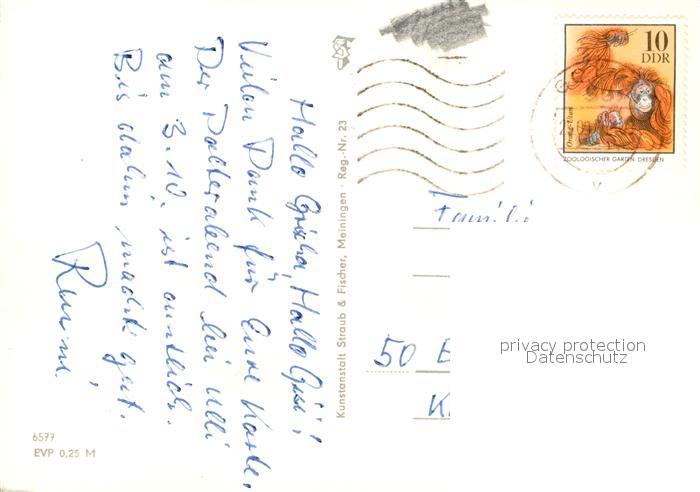 Hallo Gisela, Hallo Gisi!
Vielen Dank für Eure Karte.
Der Polterabend bei Ulli
am 3. 10. ist amtlich.
Bis dahin, macht gut.
Kunstanstalt Straub & Fischer, Meiningen · Reg.-Nr. 23
10
DDR
Orang-Utan
ZOOLOGISCHER GARTEN DRESDEN
Famili
50
privacy protection
Datenschutz
6577
EVP 0,25 M